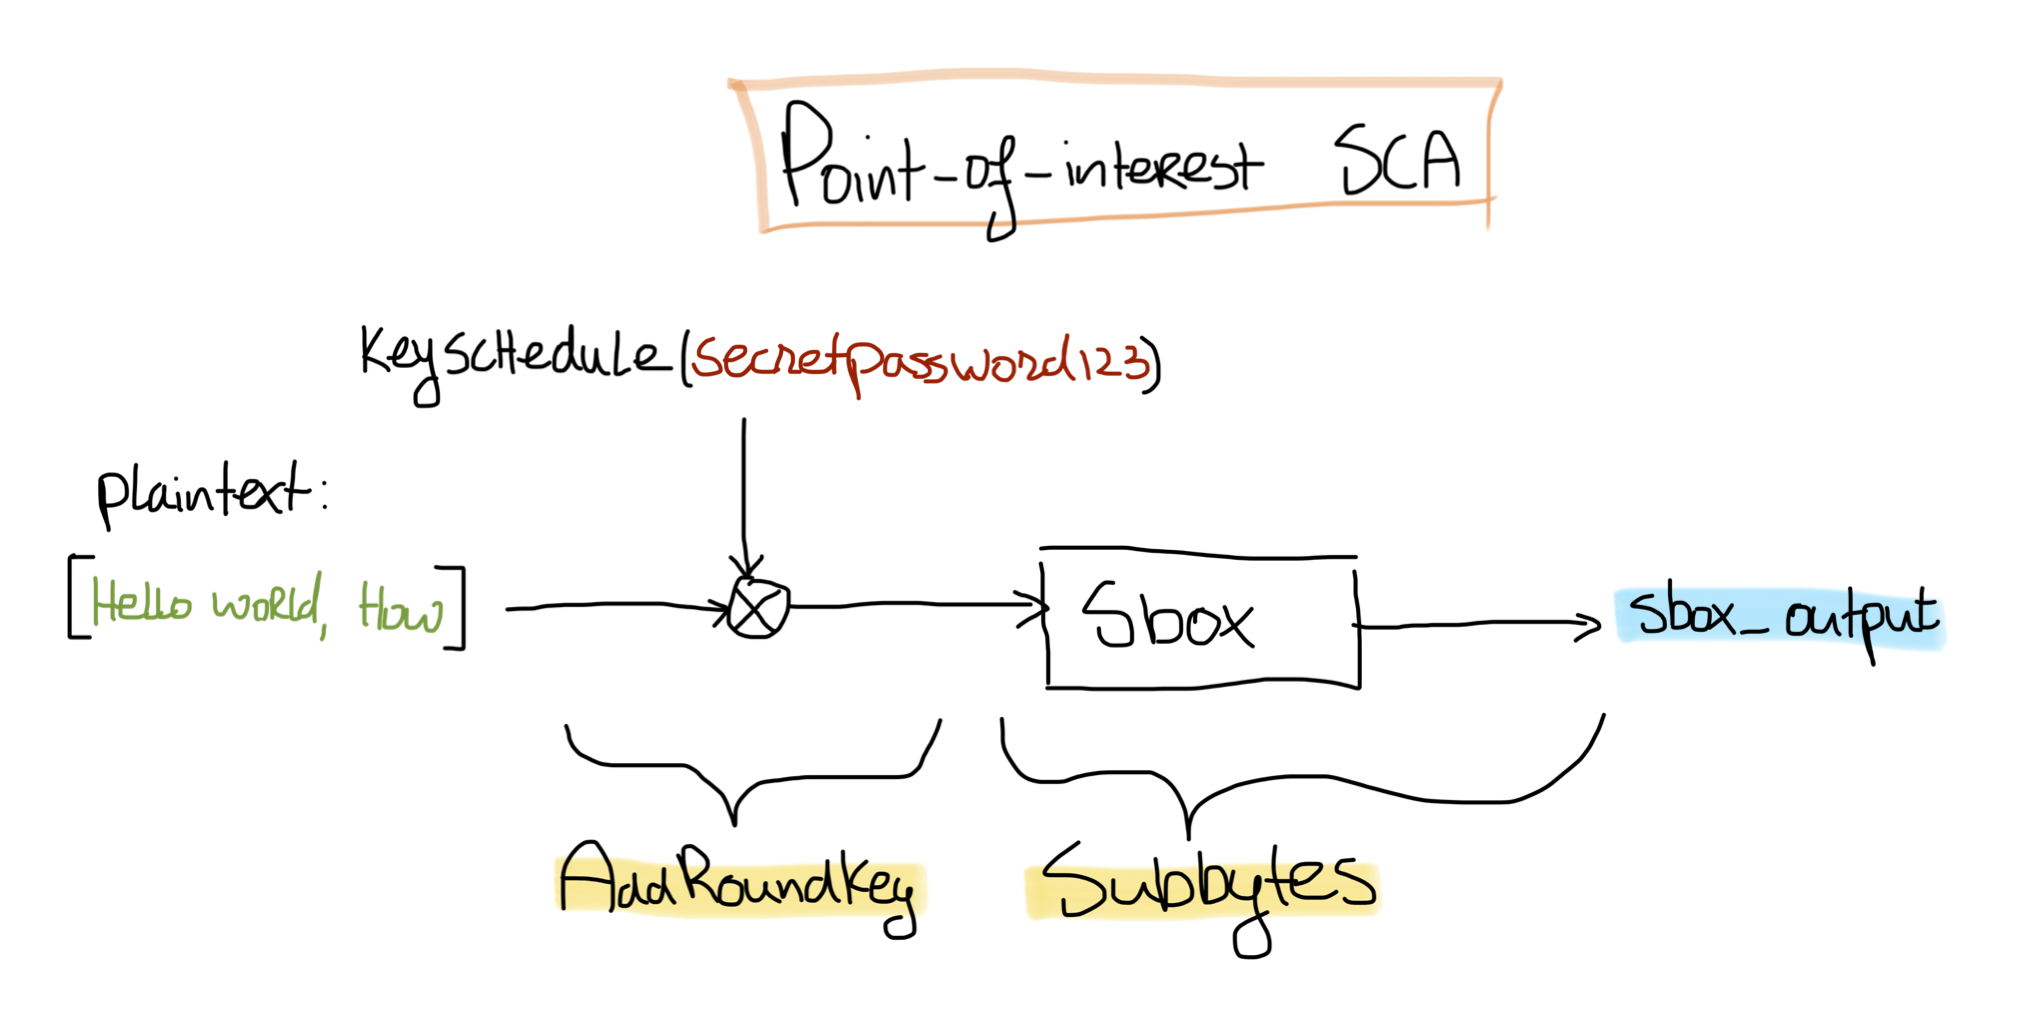 Point-of-interest SCA
KeyScHedule(secretpassword123)
plaintext:
[Hello world, How]
Sbox
sbox_output
AddRoundKey
Subbytes